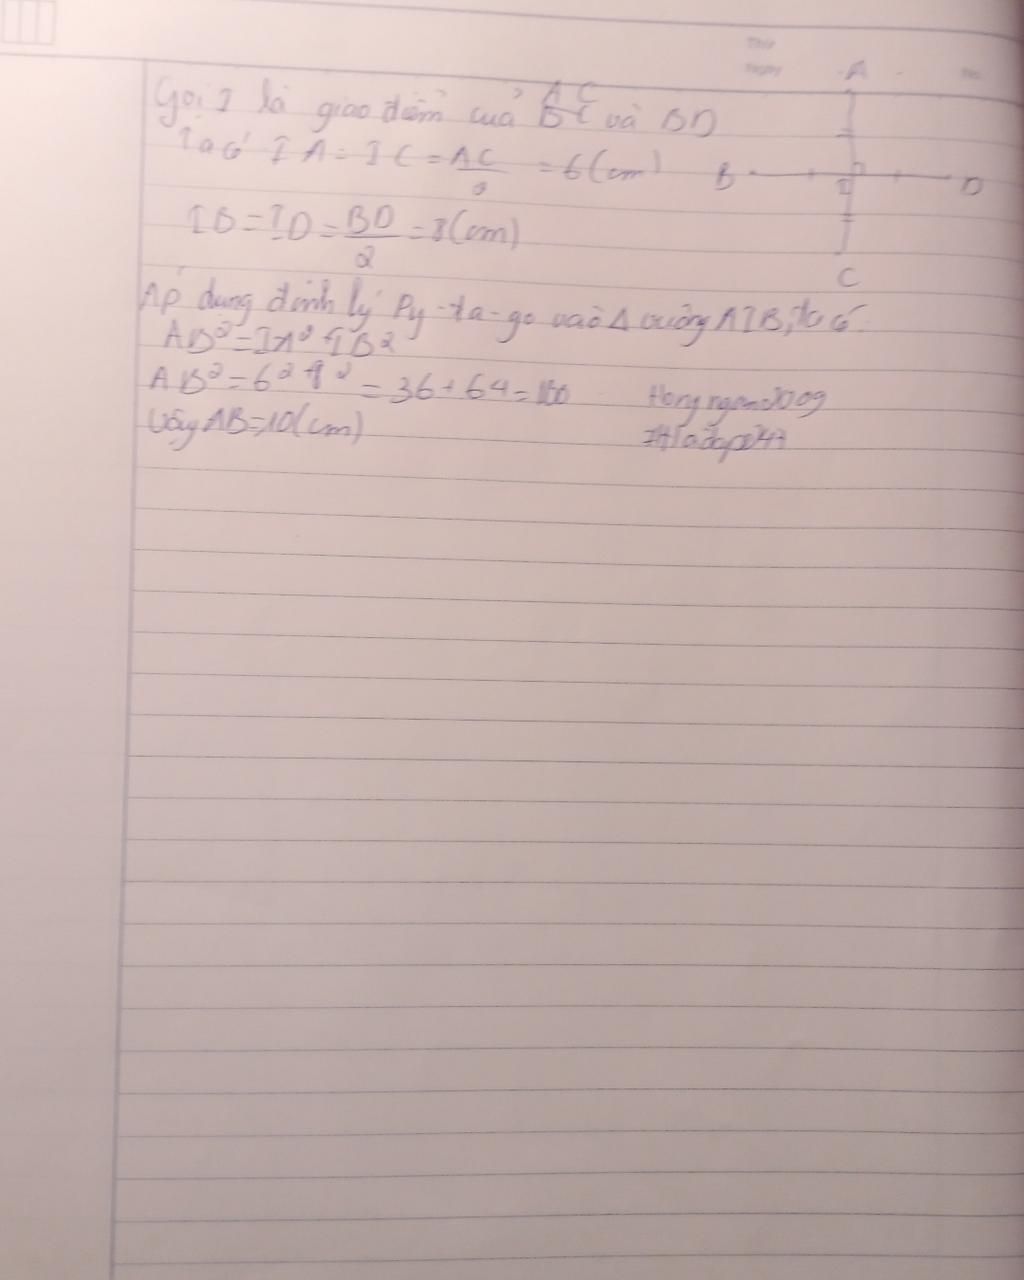 Thứ
Ngày
No.
A
Gọi I là giao điểm của AC và BD
Ta có IA = IC = AC/2 = 6(cm)
B
I
D
IB = ID = BD/2 = 8(cm)
C
Áp dụng định lý Py-ta-go vào Δ vuông AIB, ta có:
AB² = IA² + IB²
AB² = 6² + 8² = 36 + 64 = 100
Vậy AB = 10(cm)